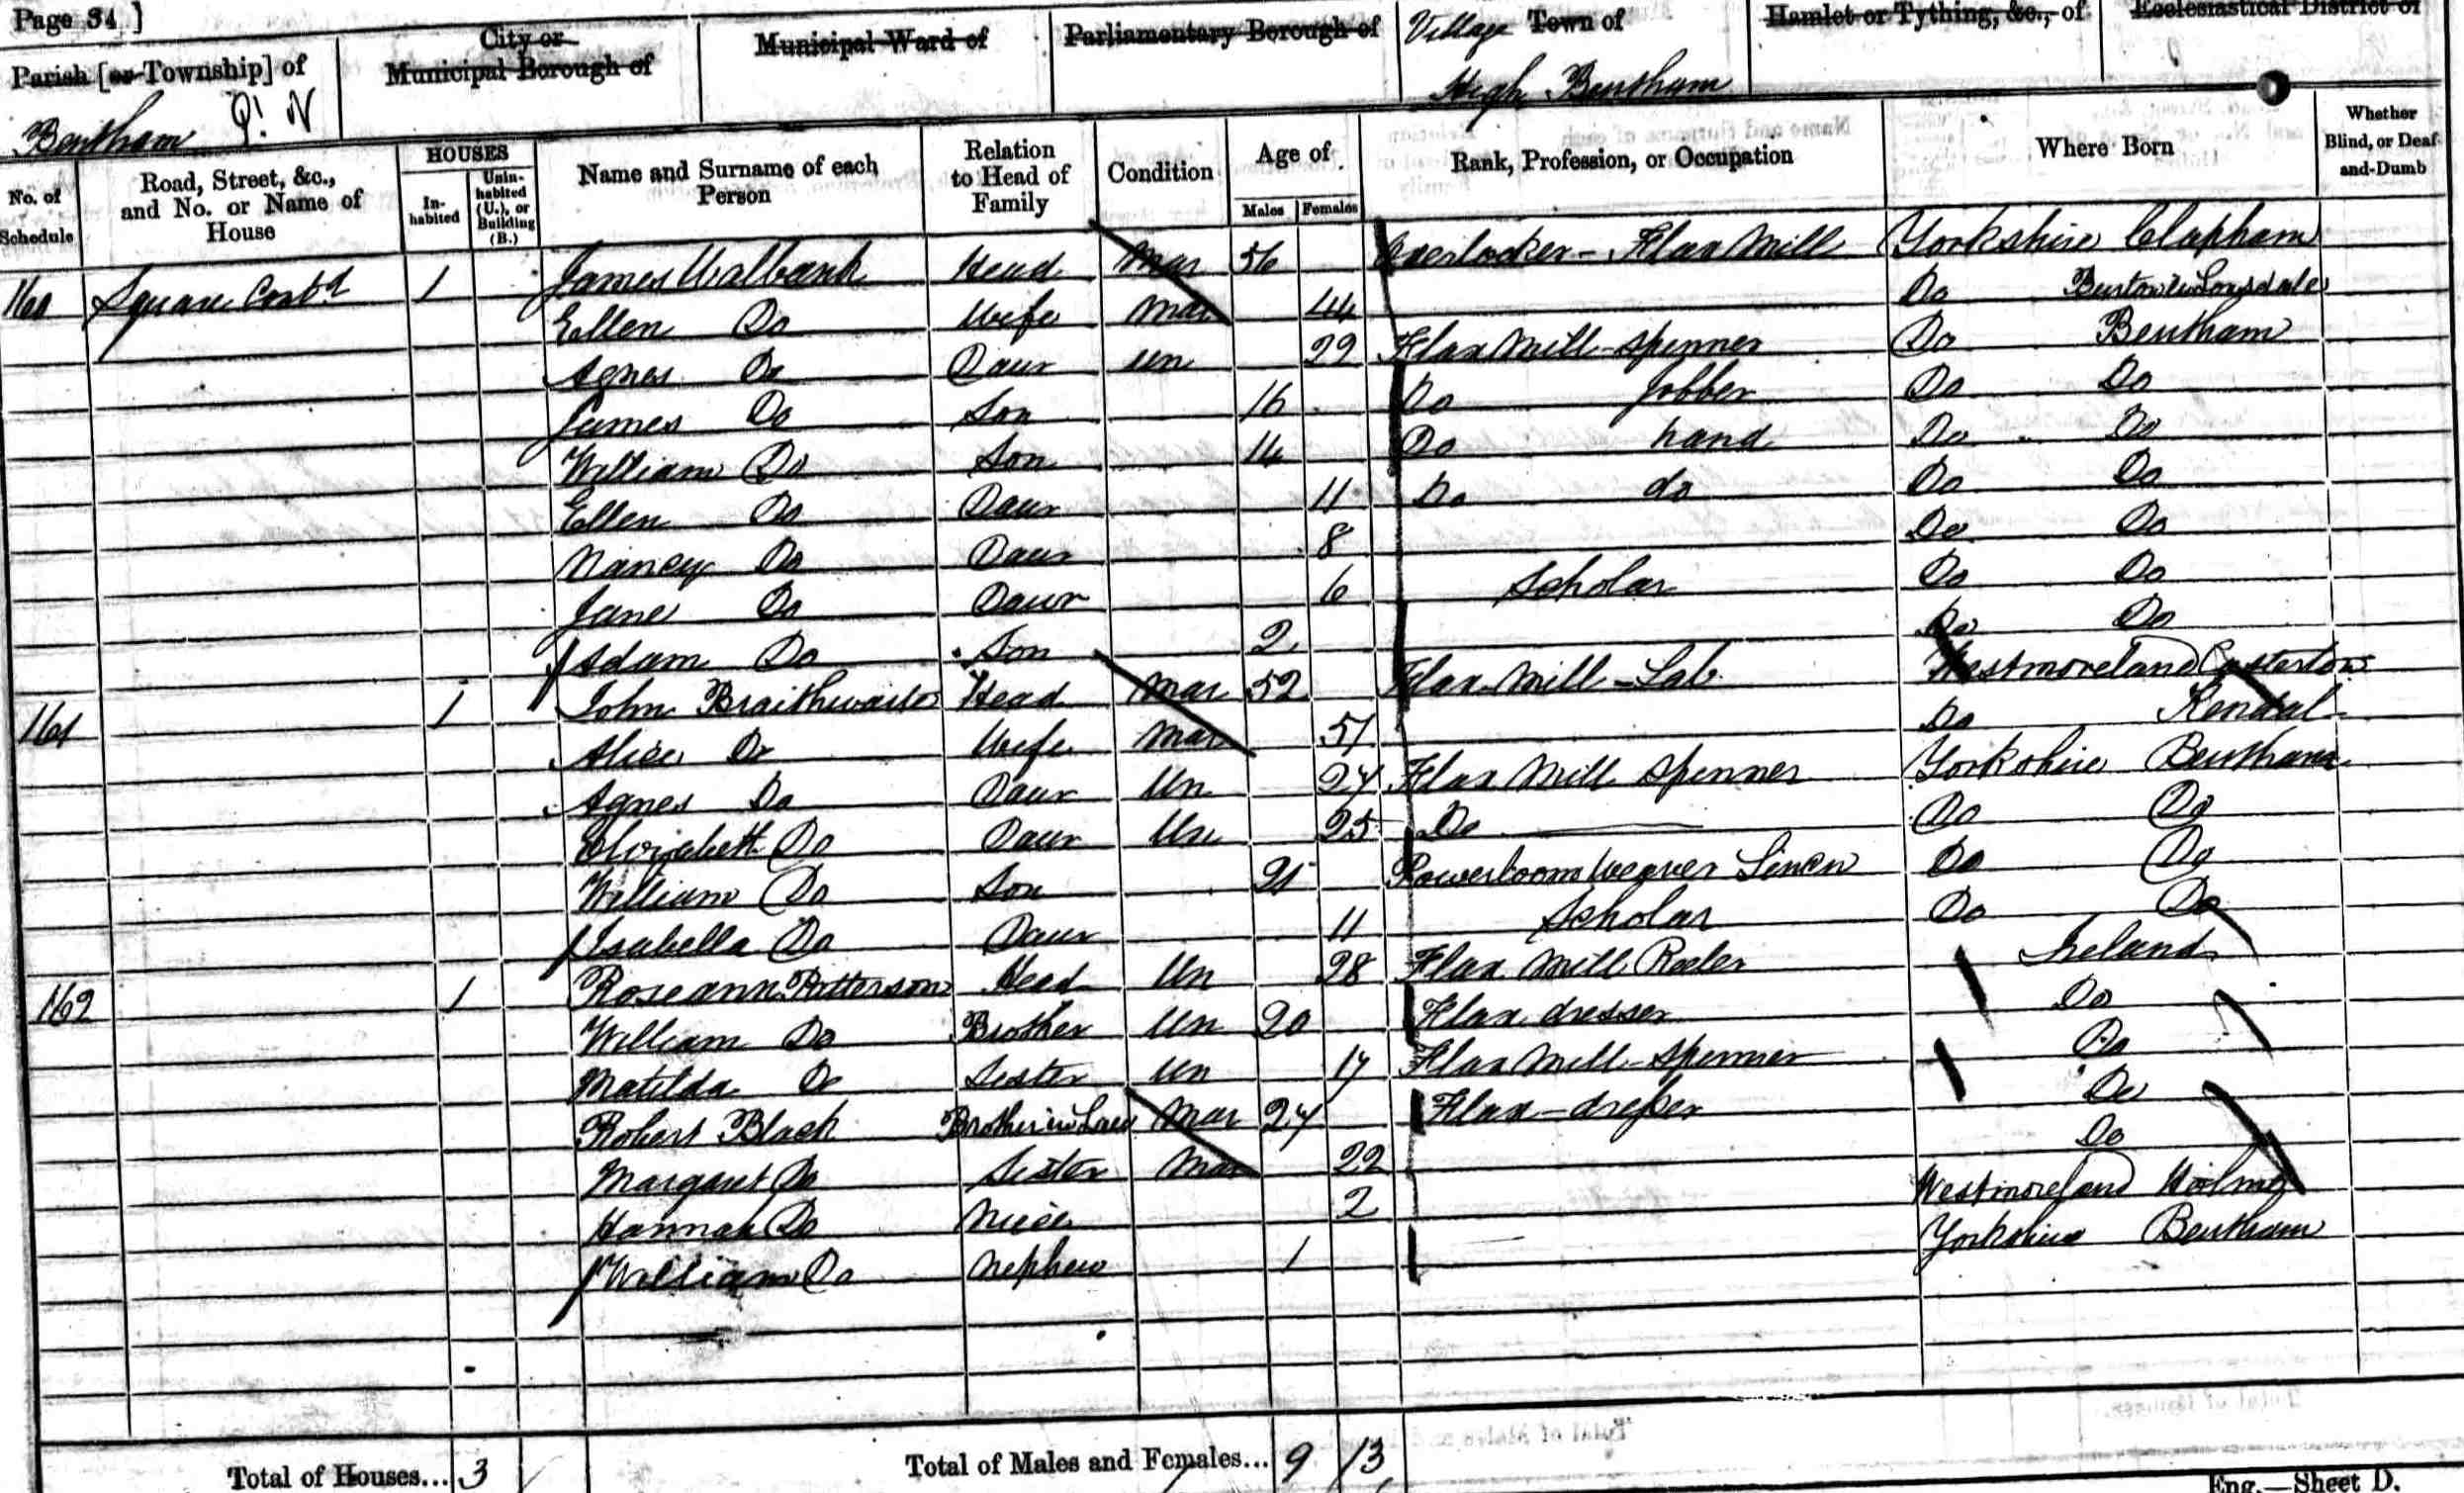 Page 34 ]
Parish [or Township] of
Bentham
City or
Municipal Borough of
Municipal Ward of
Parliamentary Borough of
Village Town of
High Bentham
Hamlet or Tything, &c., of
Ecclesiastical District of
No. of Schedule
Road, Street, &c., and No. or Name of House
HOUSES
In-habited
Unin-habited (U.), or Building (B.)
Name and Surname of each Person
Relation to Head of Family
Condition
Age of
Males
Females
Rank, Profession, or Occupation
Where Born
Whether Blind, or Deaf-and-Dumb
160 Square 1 James Walbank Head Mar 56 Overlooker - Flax Mill Yorkshire Clapham
Ellen Do Wife Mar 44 Do Burton in Lonsdale
Agnes Do Daur Un 22 Flax Mill - Spinner Do Bentham
James Do Son 16 Do Jobber Do Do
William Do Son 14 Do hand Do Do
Ellen Do Daur 11 Do do Do Do
Nancy Do Daur 8 Do Do
Jane Do Daur 6 Scholar Do Do
Adam Do Son 2 Do Do
161 1 John Braithwaite Head Mar 52 Flax Mill - Lab Westmoreland Casterton
Alice Do Wife Mar 51 Do Kendal
Agnes Do Daur Un 27 Flax Mill Spinner Yorkshire Bentham
Elizabeth Do Daur Un 25 Do Do Do
William Do Son 21 Powerloom Weaver Linen Do Do
Isabella Do Daur 11 Scholar Do Do
162 1 Roseann Patterson Head Un 28 Flax Mill Reeler Ireland
William Do Brother Un 20 Flax dresser Do
Matilda Do Sister Un 17 Flax Mill - Spinner Do
Robert Black Brother in Law Mar 27 Flax - dresser Do
Margaret Do Sister Mar 22 Do
Hannah Do Niece 2 Westmoreland Holme
William Do Nephew 1 Yorkshire Bentham
Total of Houses... 3
Total of Males and Females... 9 13
Eng.—Sheet D.